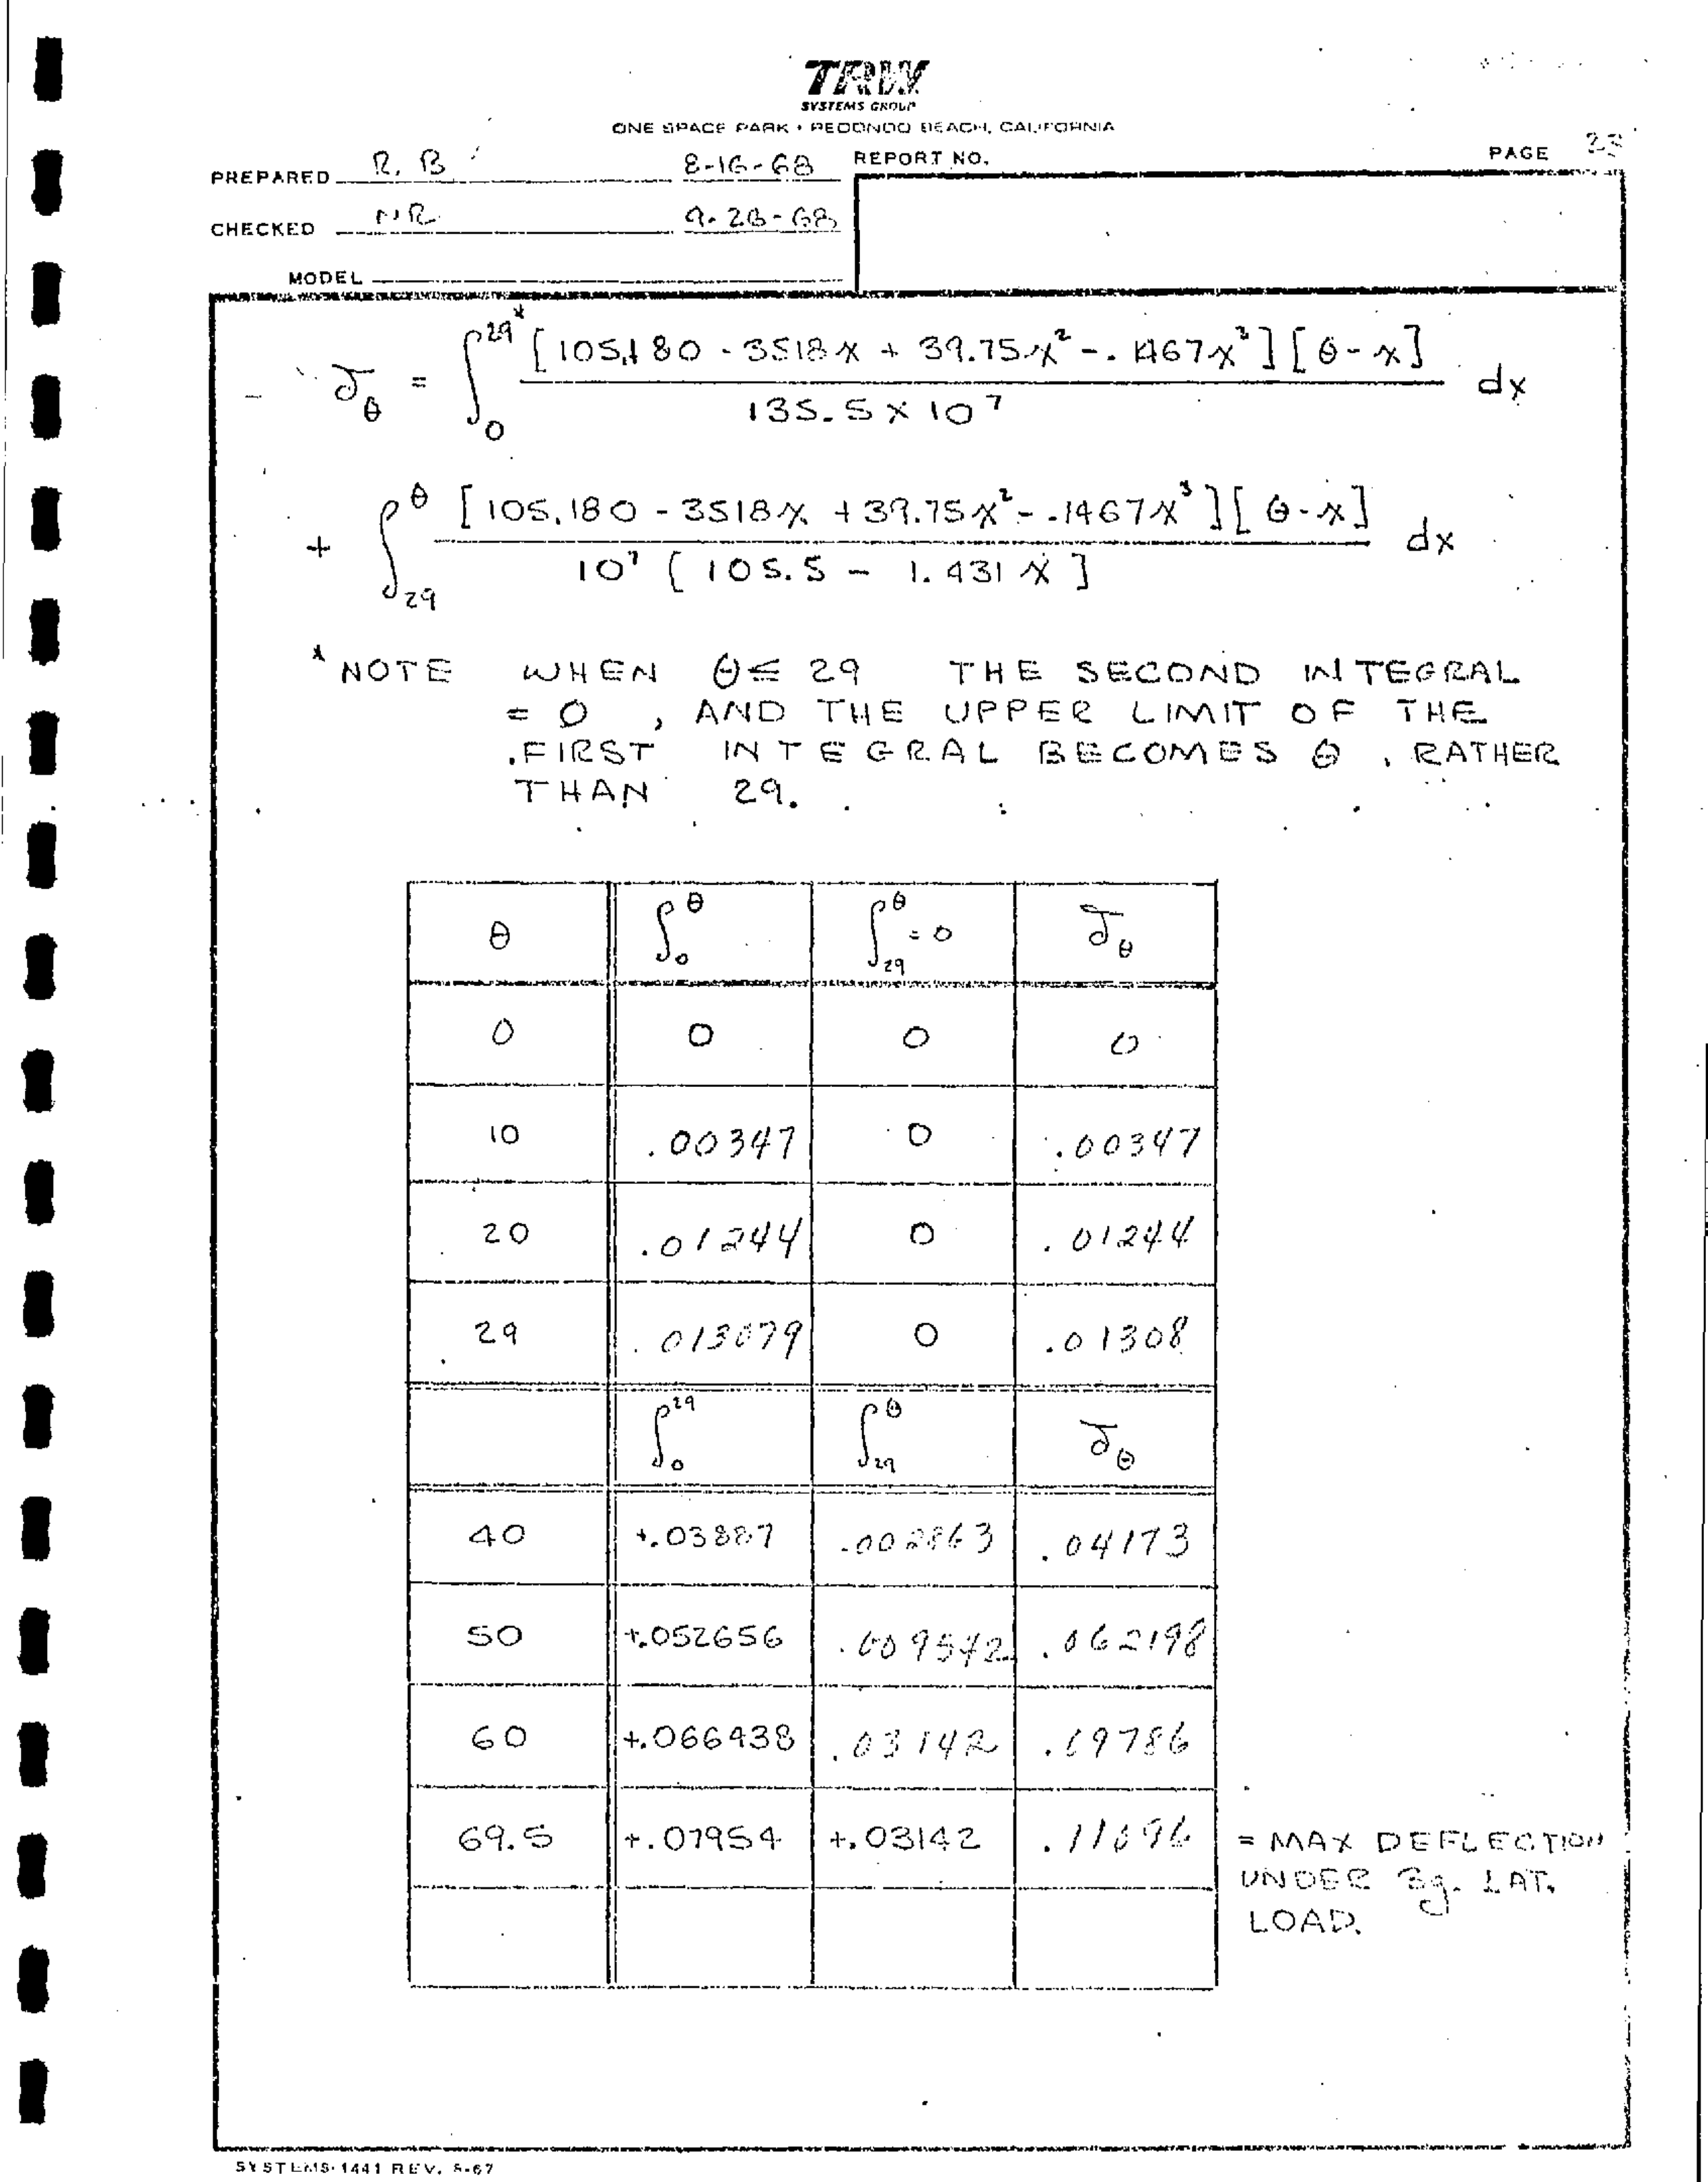 TRW
SYSTEMS GROUP
ONE SPACE PARK • REDONDO BEACH, CALIFORNIA
PREPARED R. B 8-16-68 REPORT NO. PAGE
CHECKED NR 9-26-68
MODEL
δθ = ∫₀²⁹* [105,180 - 3518x + 39.75x² - .1467x³][θ-x] / 135.5 x 10⁷ dx
+ ∫₂₉^θ [105,180 - 3518x + 39.75x² - .1467x³][θ-x] / 10⁷ [105.5 - 1.431x] dx
* NOTE WHEN θ ≤ 29 THE SECOND INTEGRAL
= 0 , AND THE UPPER LIMIT OF THE
FIRST INTEGRAL BECOMES θ , RATHER
THAN 29.
θ ∫₀^θ ∫₂₉^θ = 0 δθ
0 0 0 0
10 .00347 0 .00347
20 .01244 0 .01244
29 .013079 0 .01308
∫₀²⁹ ∫₂₉^θ δθ
40 +.03887 .002863 .04173
50 +.052656 .009542 .062198
60 +.066438 .03142 .09786
69.5 +.07954 +.03142 .11096 = MAX DEFLECTION
UNDER 3g. LAT.
LOAD.
SYSTEMS 1441 REV. 8-67